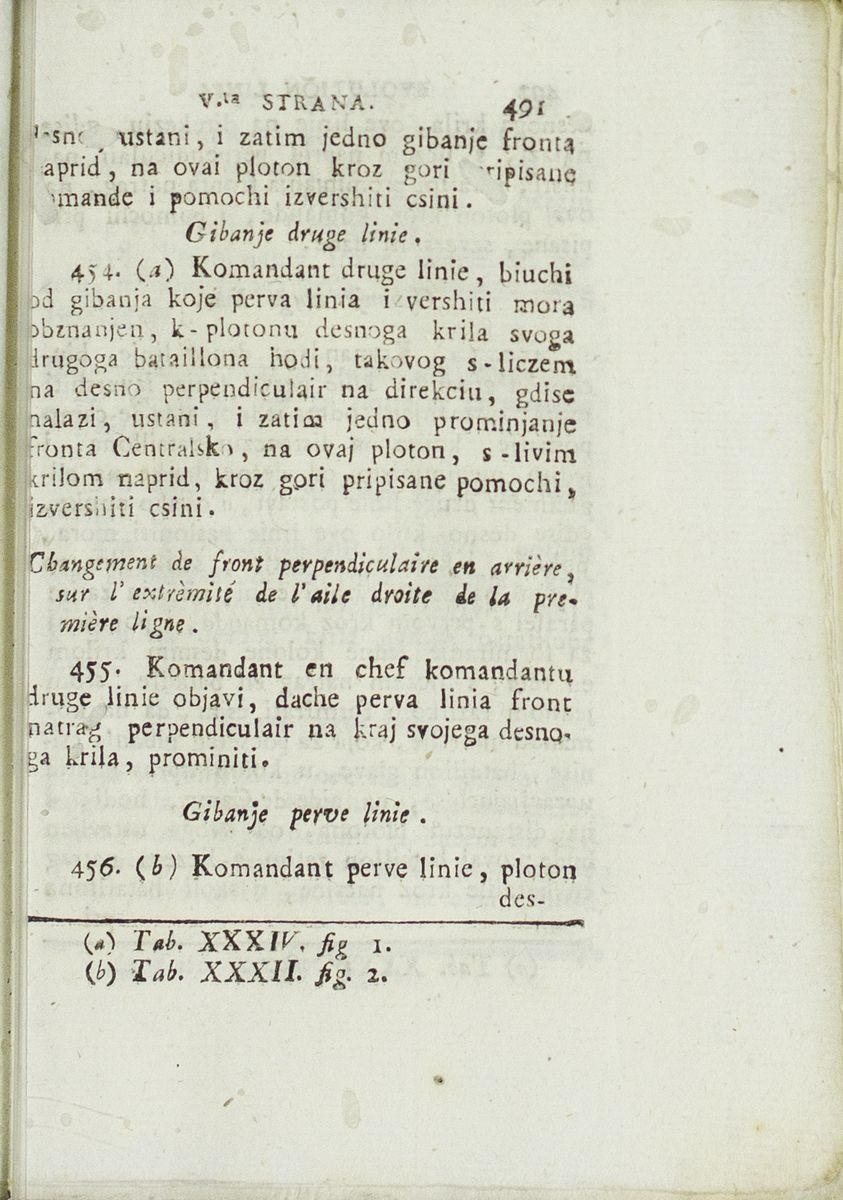 V.ta STRANA. 491
ustani, i zatim jedno gibanje fronta
aprid, na ovai ploton kroz gori ripisane
mande i pomochi izvershiti csini.
Gibanje druge linie.
454. (a) Komandant druge linie, biuchi
od gibanja koje perva linia izvershiti mora
obznanjen, k-plotonu desnoga krila svoga
drugoga bataillona hodi, takovog s-liczem
na desno perpendiculair na direkciu, gdise
nalazi, ustani, i zatim jedno prominjanje
fronta Centralsko, na ovaj ploton, s-livim
krilom naprid, kroz gori pripisane pomochi,
izvershiti csini.
Changement de front perpendiculaire en arrière,
sur l'extrèmité de l'aile droite de la pre-
mière ligne.
455. Komandant en chef komandantu
druge linie objavi, dache perva linia front
natrag perpendiculair na kraj svojega desno-
ga krila, prominiti.
Gibanje perve linie.
456. (b) Komandant perve linie, ploton
des-
(a) Tab. XXXIV. fig 1.
(b) Tab. XXXII. fig. 2.